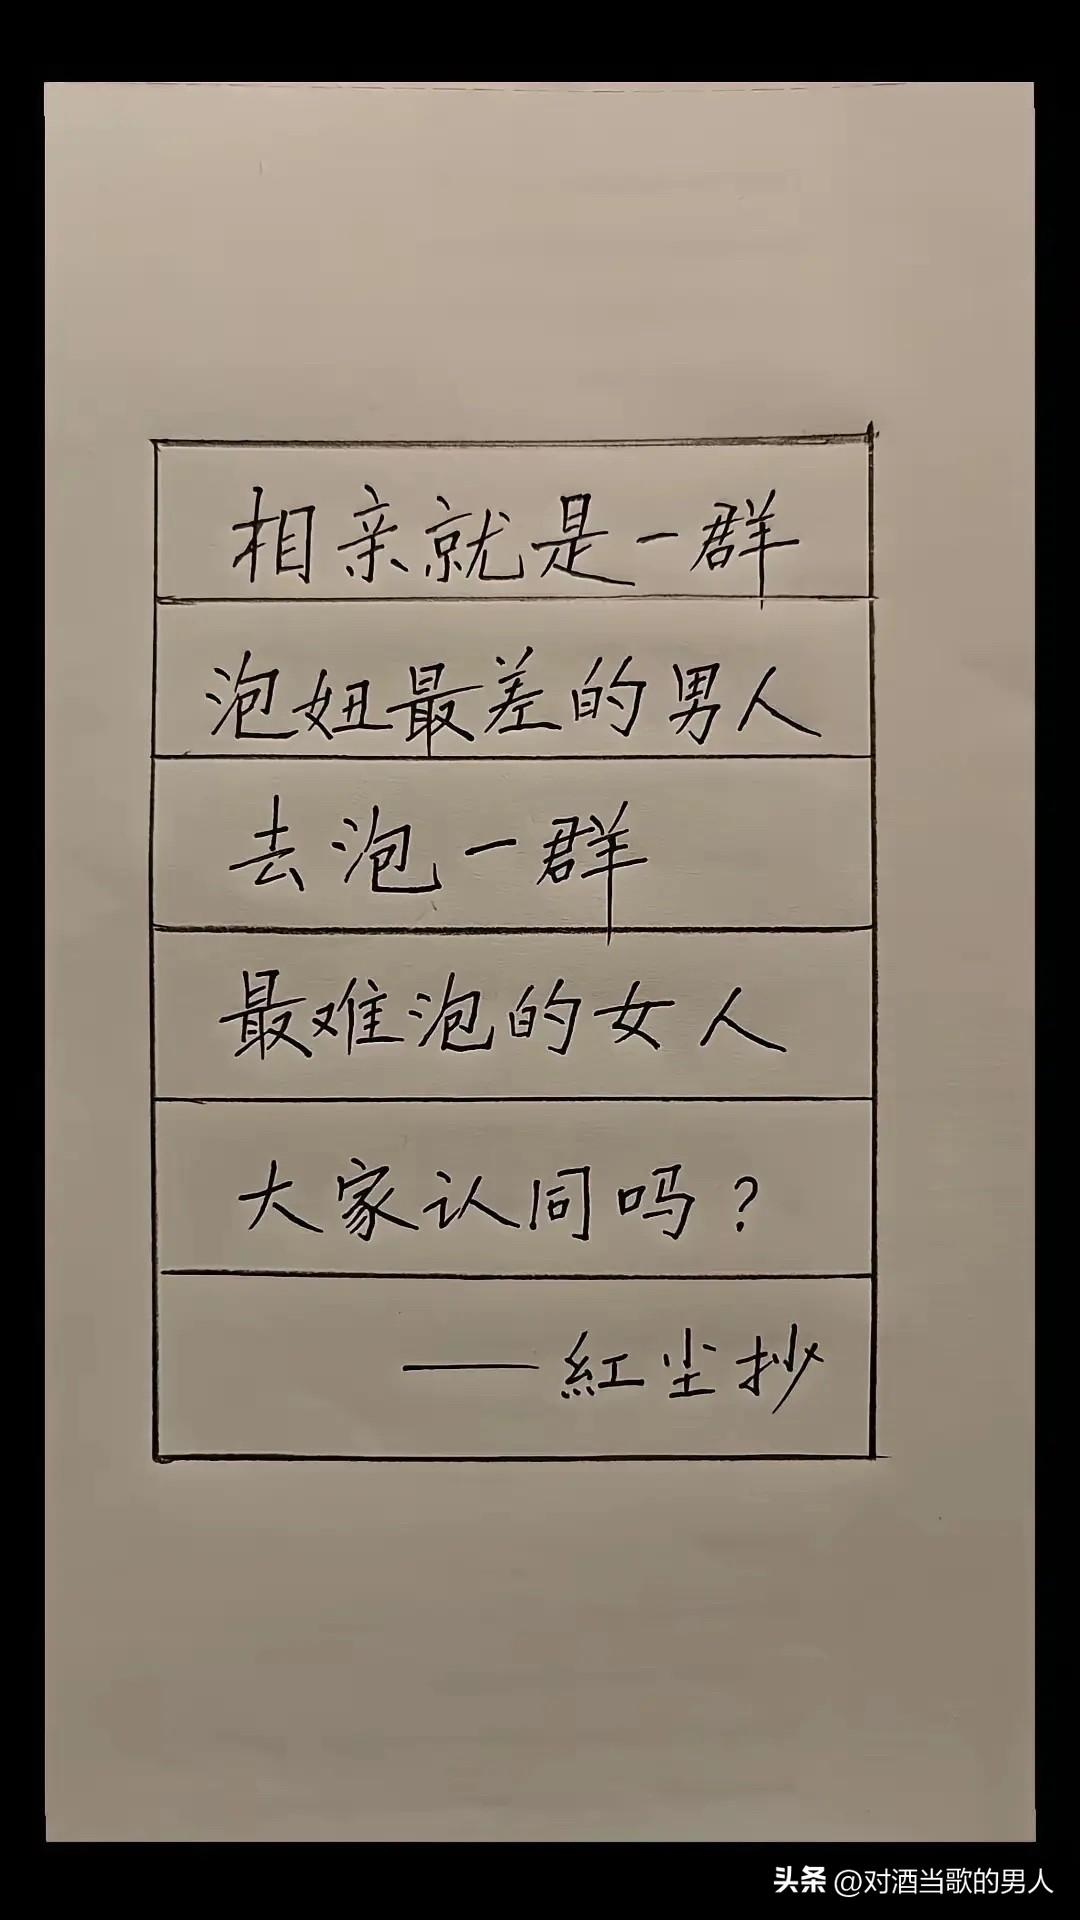 相亲就是一群
泡妞最差的男人
去泡一群
最难泡的女人
大家认同吗?
——紅尘抄
头条 @对酒当歌的男人